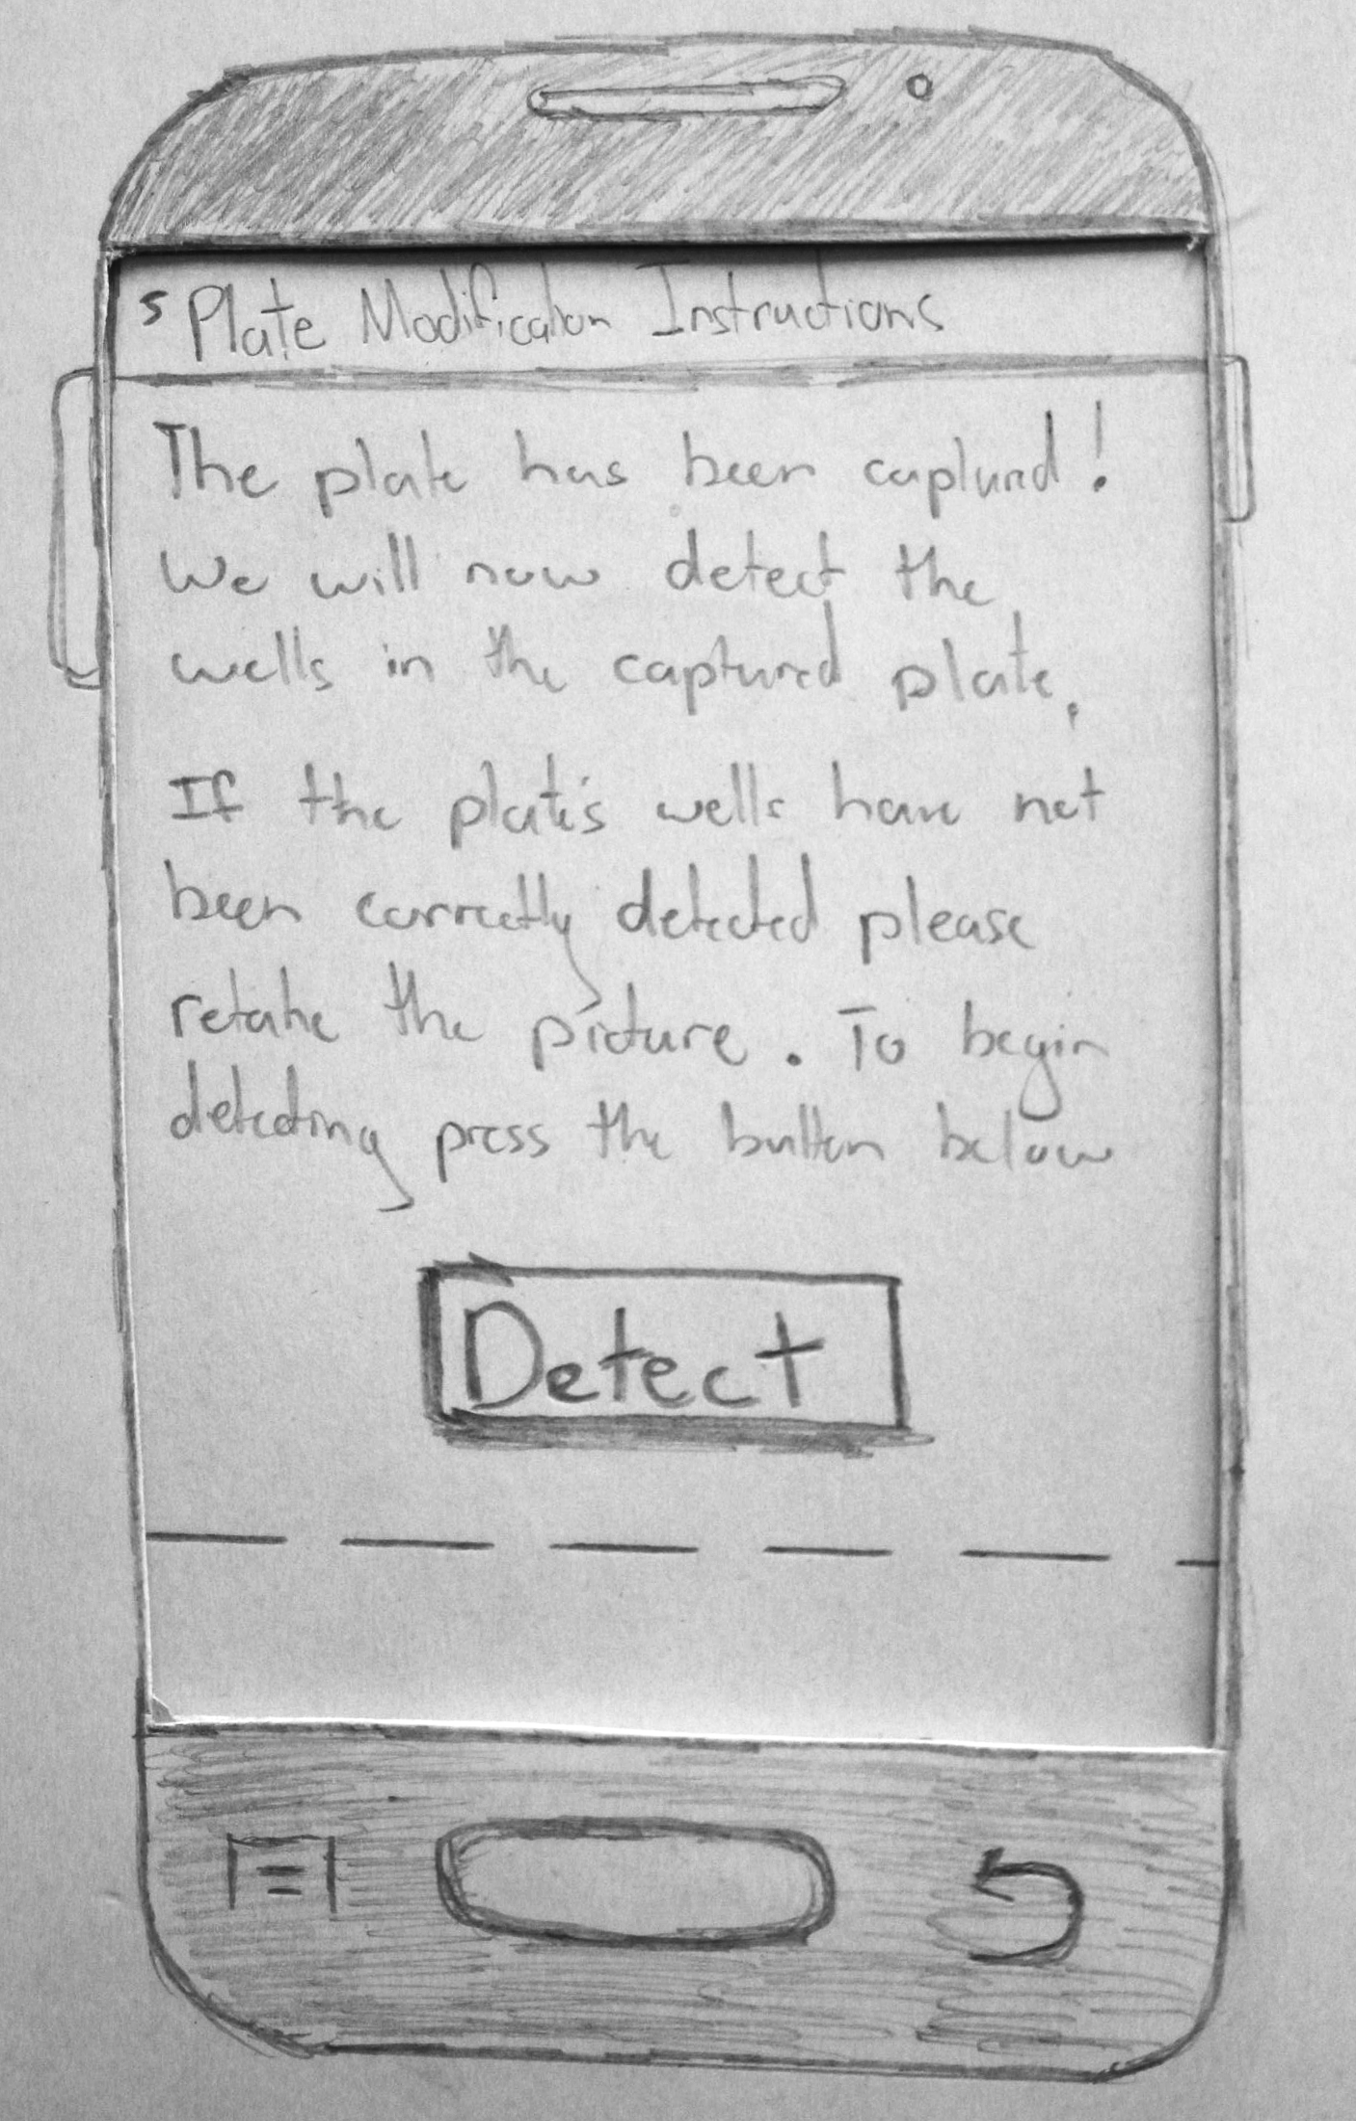 5 Plate Modification Instructions
The plate has been captured!
We will now detect the
wells in the captured plate.
If the plate's wells have not
been correctly detected please
retake the picture. To begin
detecting press the button below
Detect